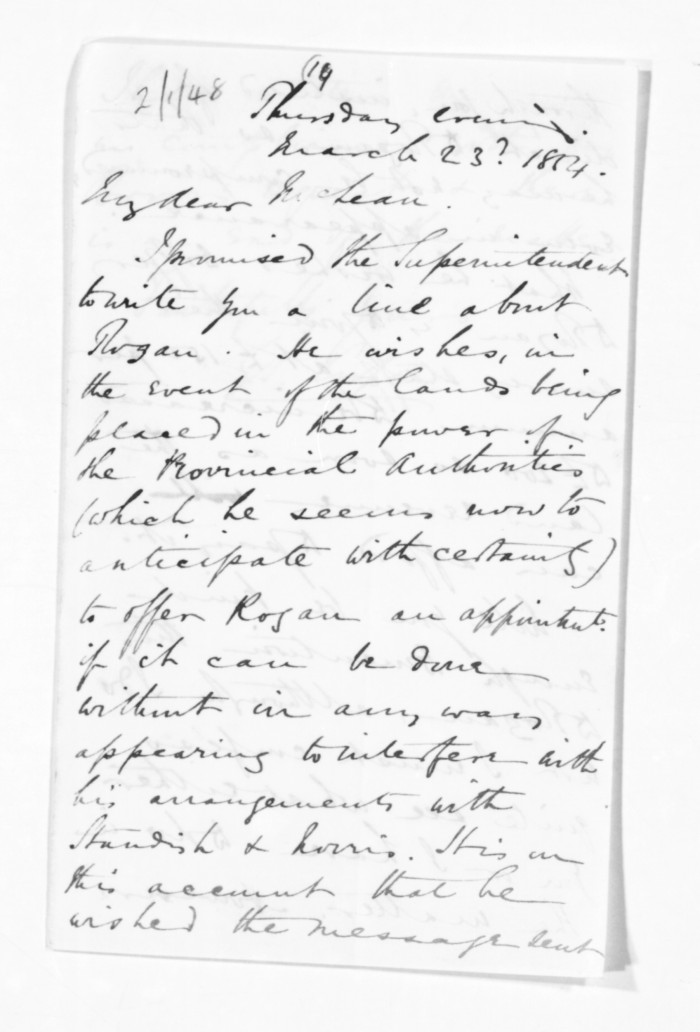 14
2/1/48
Thursday evening.
March 23? 1854.
My dear McLean.
I promised the Superintendent
to write you a line about
Rogan. He wishes, in
the event of the lands being
placed in the power of
the Provincial Authorities
(which he seems now to
anticipate with certainty)
to offer Rogan an appointmt.
if it can be done
without in any way
appearing to interfere with
his arrangements with
Standish & Norris. It is on
this account that he
wished the message sent